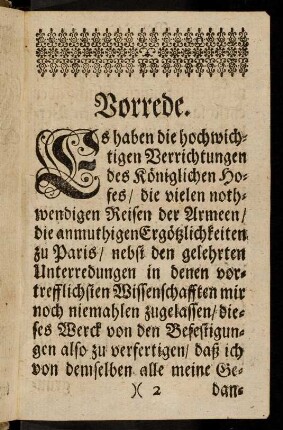 Vorrede.
Es haben die hochwich-
tigen Verrichtungen
des Königlichen Ho-
fes/ die vielen noth-
wendigen Reisen der Armeen/
die anmuthigen Ergötzlichkeiten
zu Paris/ nebst den gelehrten
Unterredungen in denen vor-
trefflichsten Wissenschafften mir
noch niemahlen zugelassen/ die-
ses Werck von den Befestigun-
gen also zu verfertigen/ daß ich
von demselben alle meine Ge-
)( 2 dan-